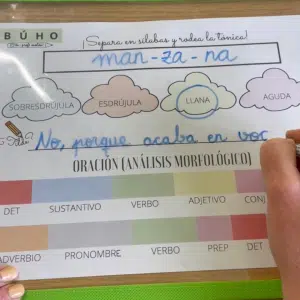 BÚHO
¡Separa en sílabas y rodea la tónica!
man-za-na
SOBRESDRÚJULA ESDRÚJULA LLANA AGUDA
No, porque acaba en voc
ORACIÓN (ANÁLISIS MORFOLÓGICO)
DET SUSTANTIVO VERBO ADJETIVO CONJ
ADVERBIO PRONOMBRE VERBO PREP DET